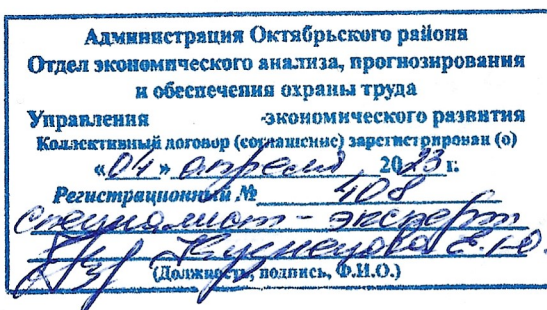 Администрация Октябрьского района
Отдел экономического анализа, прогнозирования
и обеспечения охраны труда
Управления -экономического развития
Коллективный договор (соглашение) зарегистрирован (о)
«04» апреля 2023 г.
Регистрационный № 408
специалист - эксперт
Кузнецова Е.Ю.
(Должность, подпись, Ф.И.О.)